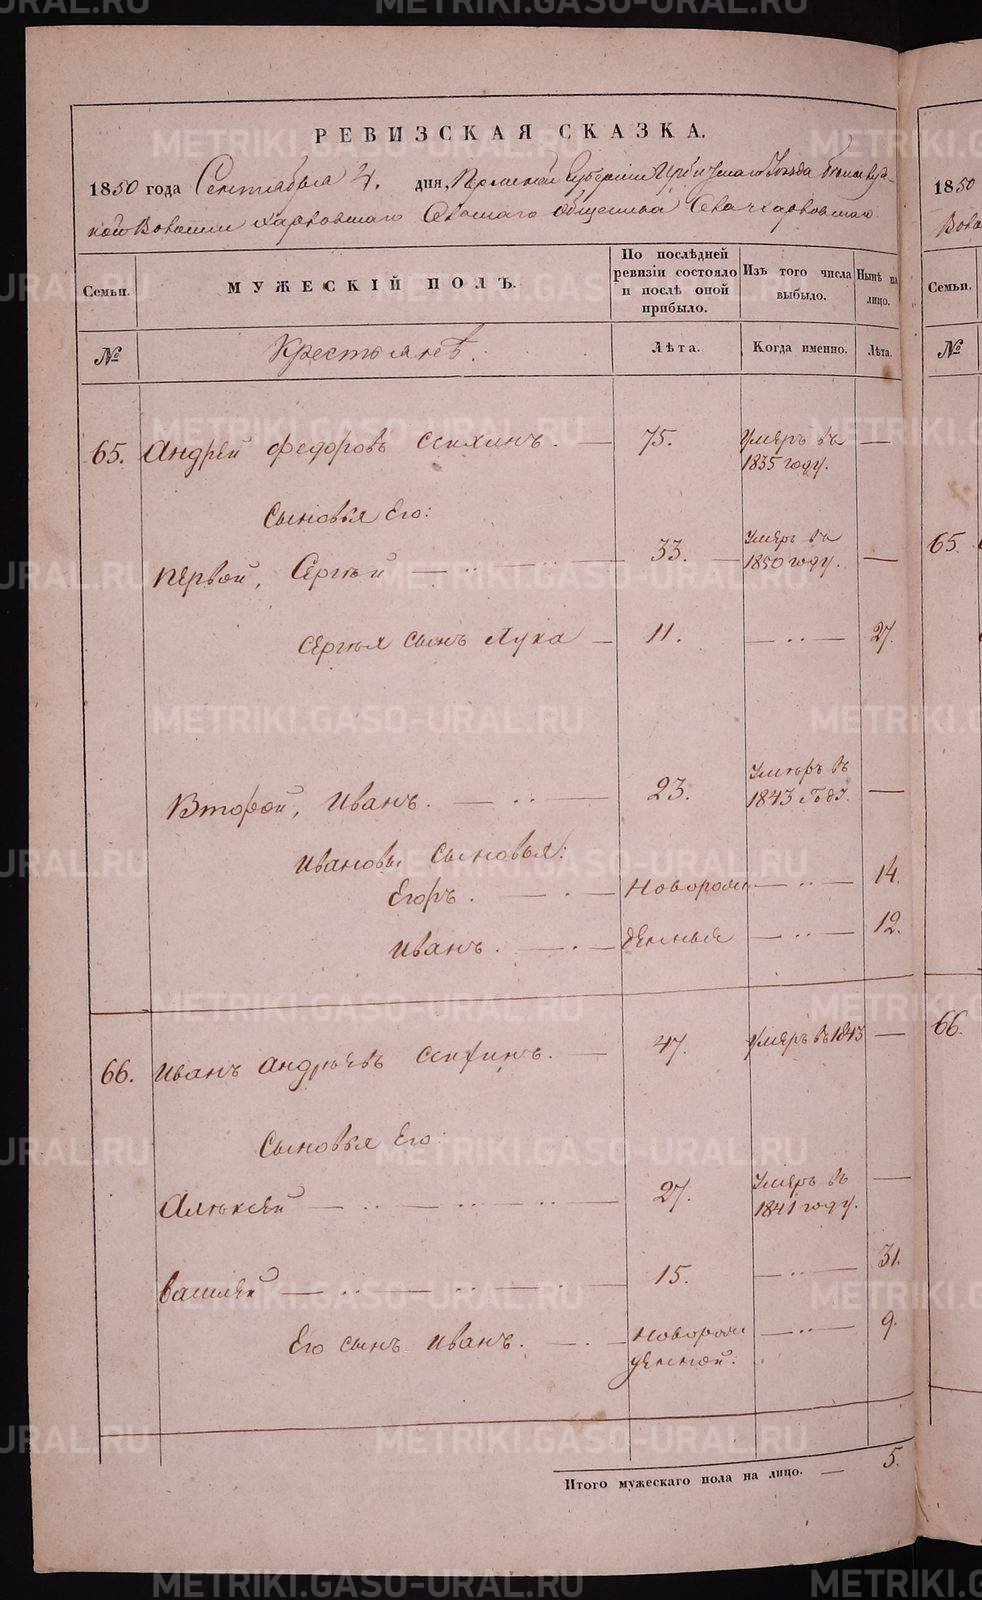 METRIKI.GASO-URAL.RU
РЕВИЗСКАЯ СКАЗКА.
1850 года Сентября 4. дня, Пермской Губернии Уезда
Волости Харловскаго Сельскаго общества Села Харловскаго
Семьи. МУЖЕСКІЙ ПОЛЪ. По послѣдней ревизіи состояло и послѣ оной прибыло. Изъ того числа выбыло. Нынѣ на лицо.
№ Крестьянѣ. Лѣта. Когда именно. Лѣта.
65. Андрей Федоровъ 75. Умеръ въ 1835 году. —
Сыновья Его:
Первой, Сергѣй 33. Умеръ въ 1850 году. —
Сергѣя сынъ Лука — 11. — 27.
Второй, Иванъ. 23. Умеръ въ 1843 годȣ. —
Ивановы сыновья:
Егоръ. Новорож 14.
Иванъ. денныя 12.
66. Иванъ Андрѣевъ 47. Умеръ въ 1843 —
Сыновья Его:
Алѣксей 27. Умеръ въ 1841 году. —
Василей 15. 31.
Его сынъ Иванъ. Новорож 9.
денной.
Итого мужескаго пола на лицо. — 5.
1850
Воло
Семьи.
№
65.
66.